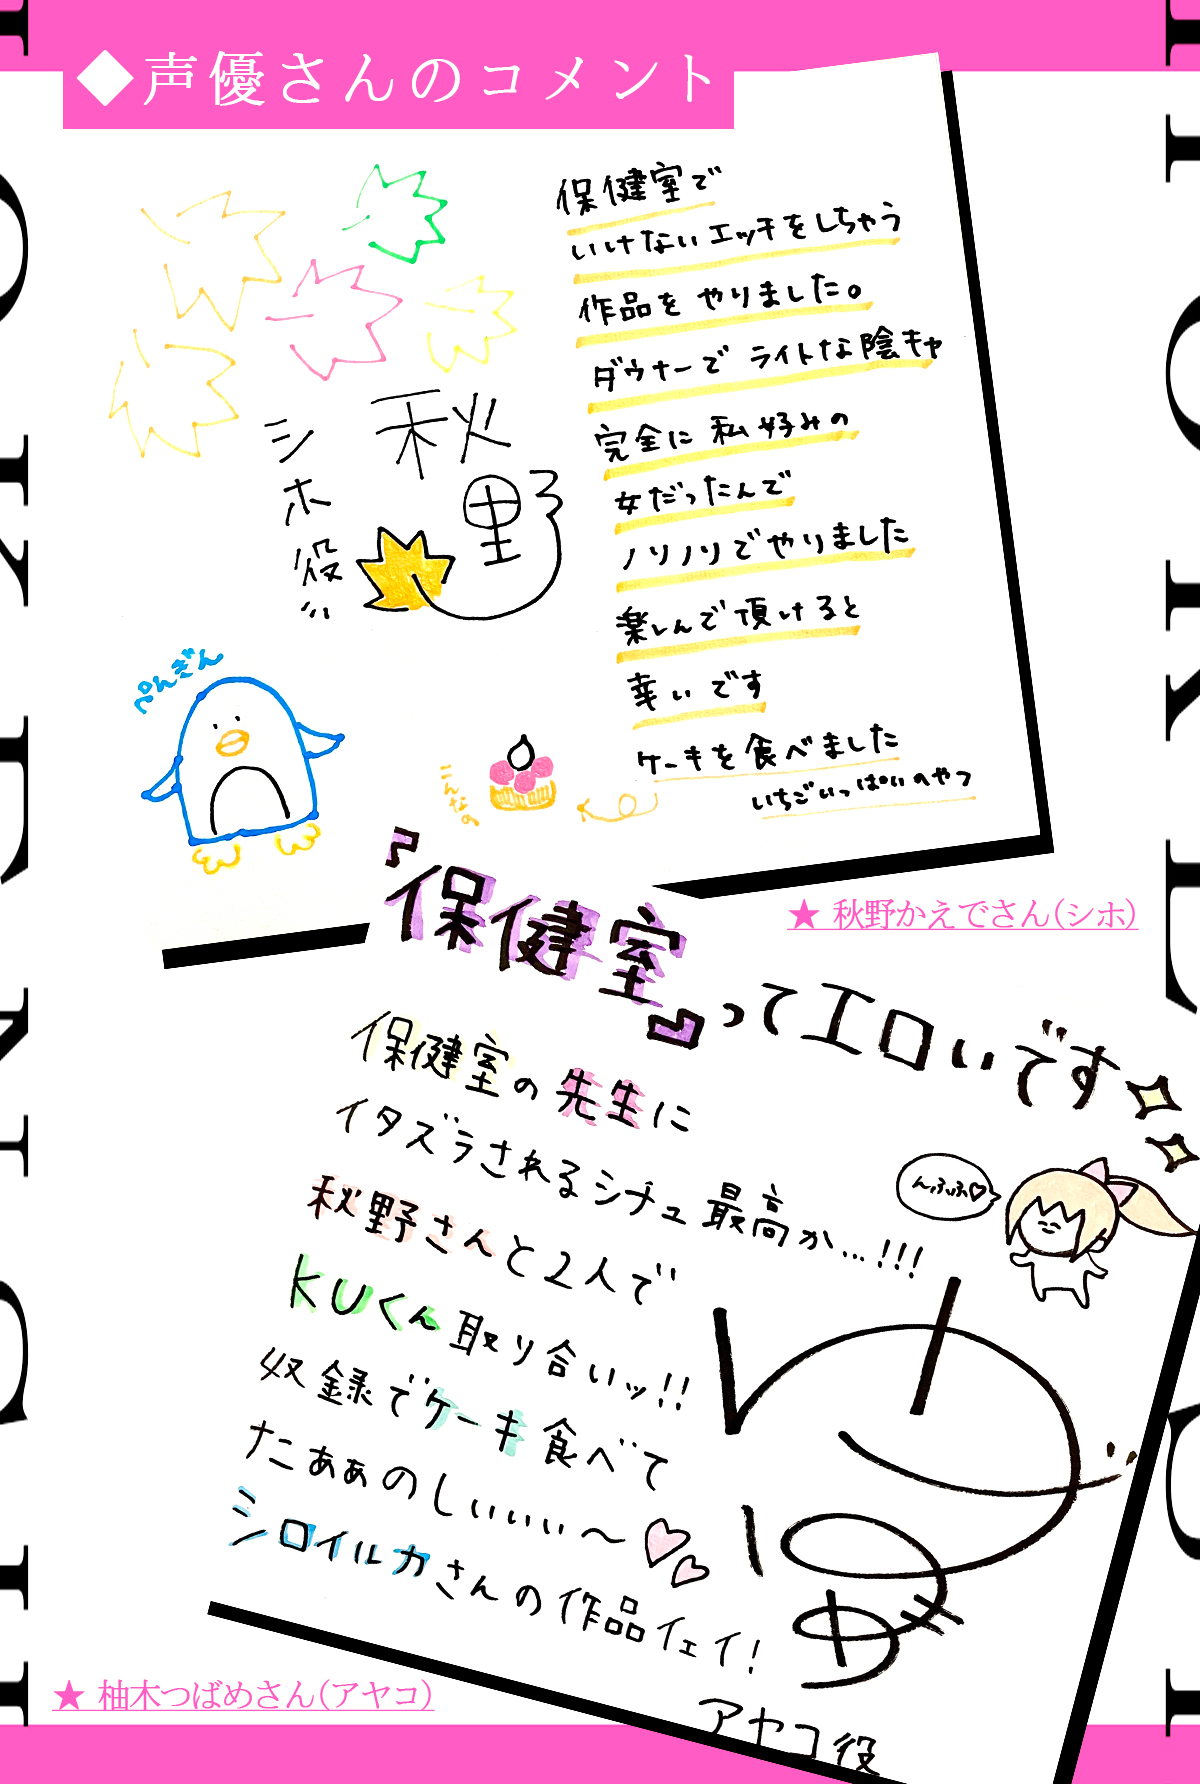 ◆声優さんのコメント
保健室で
いけないエッチをしちゃう
作品を やりました。
ダウナーで ライトな陰キャ
完全に 私好みの
女だったんで
ノリノリでやりました
楽しんで頂けると
幸いです
ケーキを食べました
いちごいっぱいのやつ
こんなの
秋野
シホ役
ぺんぎん
★ 秋野かえでさん(シホ)
『保健室』ってエロいです
保健室の先生に
イタズラされるシチュ最高か…!!!
んふふ♡
秋野さんと2人で
KUくん取り合いッ!!
収録でケーキ食べて
たこぁぁのしぃぃぃ〜
シロイルカさんの作品イェイ!
アヤコ役
★ 柚木つばめさん(アヤコ)